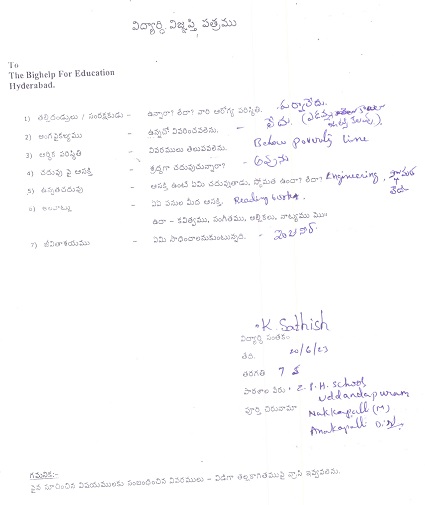 విద్యార్ధి విజ్ఞప్తి పత్రము
To
The Bighelp For Education
Hyderabad.
1) తల్లిదండ్రులు / సంరక్షకుడు - ఉన్నారా? లేదా? వారి ఆరోగ్య పరిస్థితి.
2) అంగవైకల్యము - ఉన్నచో వివరించవలెను. - లేదు.
3) ఆర్ధిక పరిస్థితి - వివరములు తెలుపవలెను. Below poverty line
4) చదువు పై ఆసక్తి - శ్రద్ధగా చదువుచున్నారా? - అవును
5) ఉన్నతచదువు - ఆసక్తి ఉంటే ఏమి చదువుతాడు, స్తోమత ఉందా? లేదా? Engineering స్తోమత లేదు
6) అలవాట్లు - ఏఏ పనుల మీద ఆసక్తి. Reading books.
ఉదా - కవిత్వము, సంగీతము, అల్లికలు, నాట్యము మొ॥
7) జీవితాశయము - ఏమి సాధించాలనుకుంటున్నది. -
K. Sathish
విద్యార్ధి సంతకం
తేది. 20/6/23
తరగతి 7 వ
పాఠశాల పేరు: Z.P.H. School
Uddandapuram
పూర్తి చిరునామా Nakkapalli (M)
Anakapalli Dist.
గమనిక:-
పైన సూచించిన విషయములకు సంబంధించిన వివరములు - విడిగా తెల్లకాగితముపై వ్రాసి ఇవ్వవలెను.